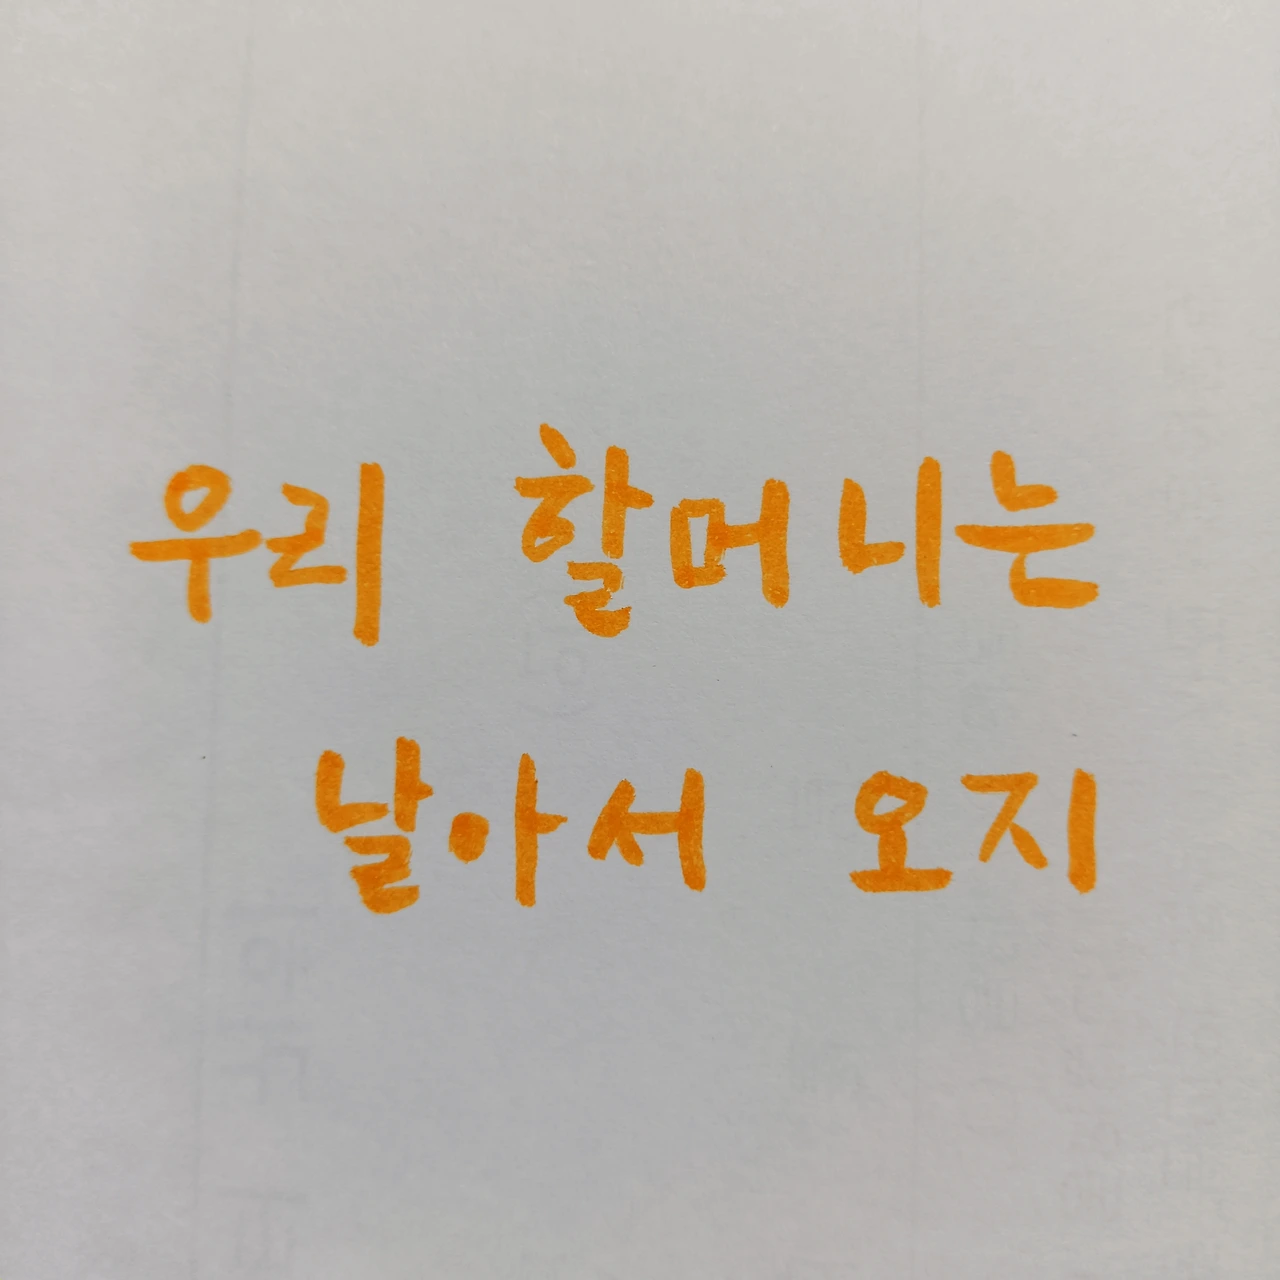 우리 할머니는
날아서 오지